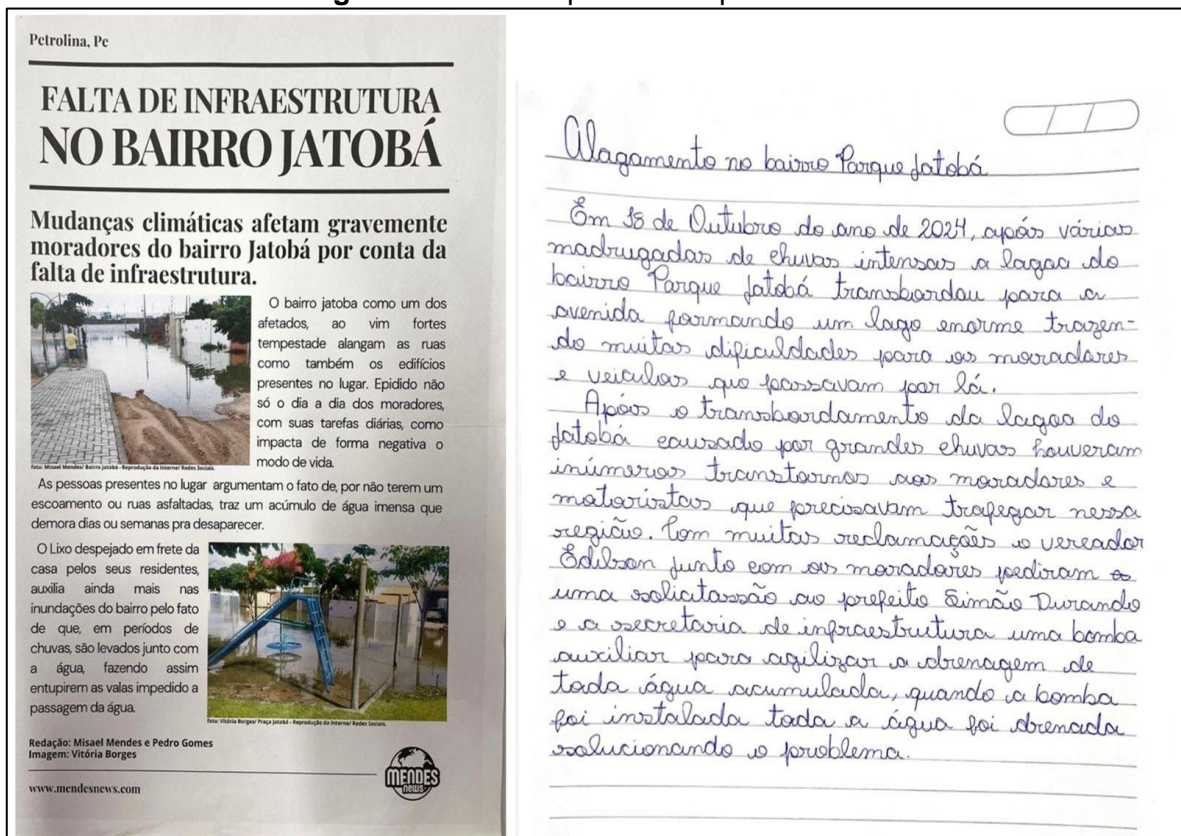 Petrolina, Pe
FALTA DE INFRAESTRUTURA
NO BAIRRO JATOBÁ
Mudanças climáticas afetam gravemente
moradores do bairro Jatobá por conta da
falta de infraestrutura.
O bairro jatoba como um dos
afetados, ao vim fortes
tempestade alangam as ruas
como também os edifícios
presentes no lugar. Epidido não
só o dia a dia dos moradores,
com suas tarefas diárias, como
impacta de forma negativa o
modo de vida.
foto: Misael Mendes/ Bairro Jatobá - Reprodução da Interne/ Redes Sociais.
As pessoas presentes no lugar argumentam o fato de, por não terem um
escoamento ou ruas asfaltadas, traz um acúmulo de água imensa que
demora dias ou semanas pra desaparecer.
O Lixo despejado em frete da
casa pelos seus residentes,
auxilia ainda mais nas
inundações do bairro pelo fato
de que, em períodos de
chuvas, são levados junto com
a água, fazendo assim
entupirem as valas impedido a
passagem da água.
foto: Vitória Borges/ Praça Jatobá - Reprodução da Interne/ Redes Sociais.
Redação: Misael Mendes e Pedro Gomes
Imagem: Vitória Borges
MENDES
news
www.mendesnews.com
Alagamento no bairro Parque Jatobá
Em 18 de Outubro do ano de 2024, após várias
madrugadas de chuvas intensas a lagoa do
bairro Parque Jatobá transbordou para a
avenida formando um lago enorme trazen-
do muitas dificuldades para os moradores
e veiculos que passavam por lá.
Após o transbordamento da lagoa do
Jatobá causado por grandes chuvas houveram
inúmeros transtornos aos moradores e
motoristas que precisavam trafegar nessa
região. Com muitas reclamações o vereador
Edilson junto com os moradores pediram
uma solicitassão ao prefeito Simão Durando
e a secretaria de infraestrutura uma bomba
auxiliar para agilizar a drenagem de
toda água acumulada, quando a bomba
foi instalada toda a água foi drenada
solucionando o problema.